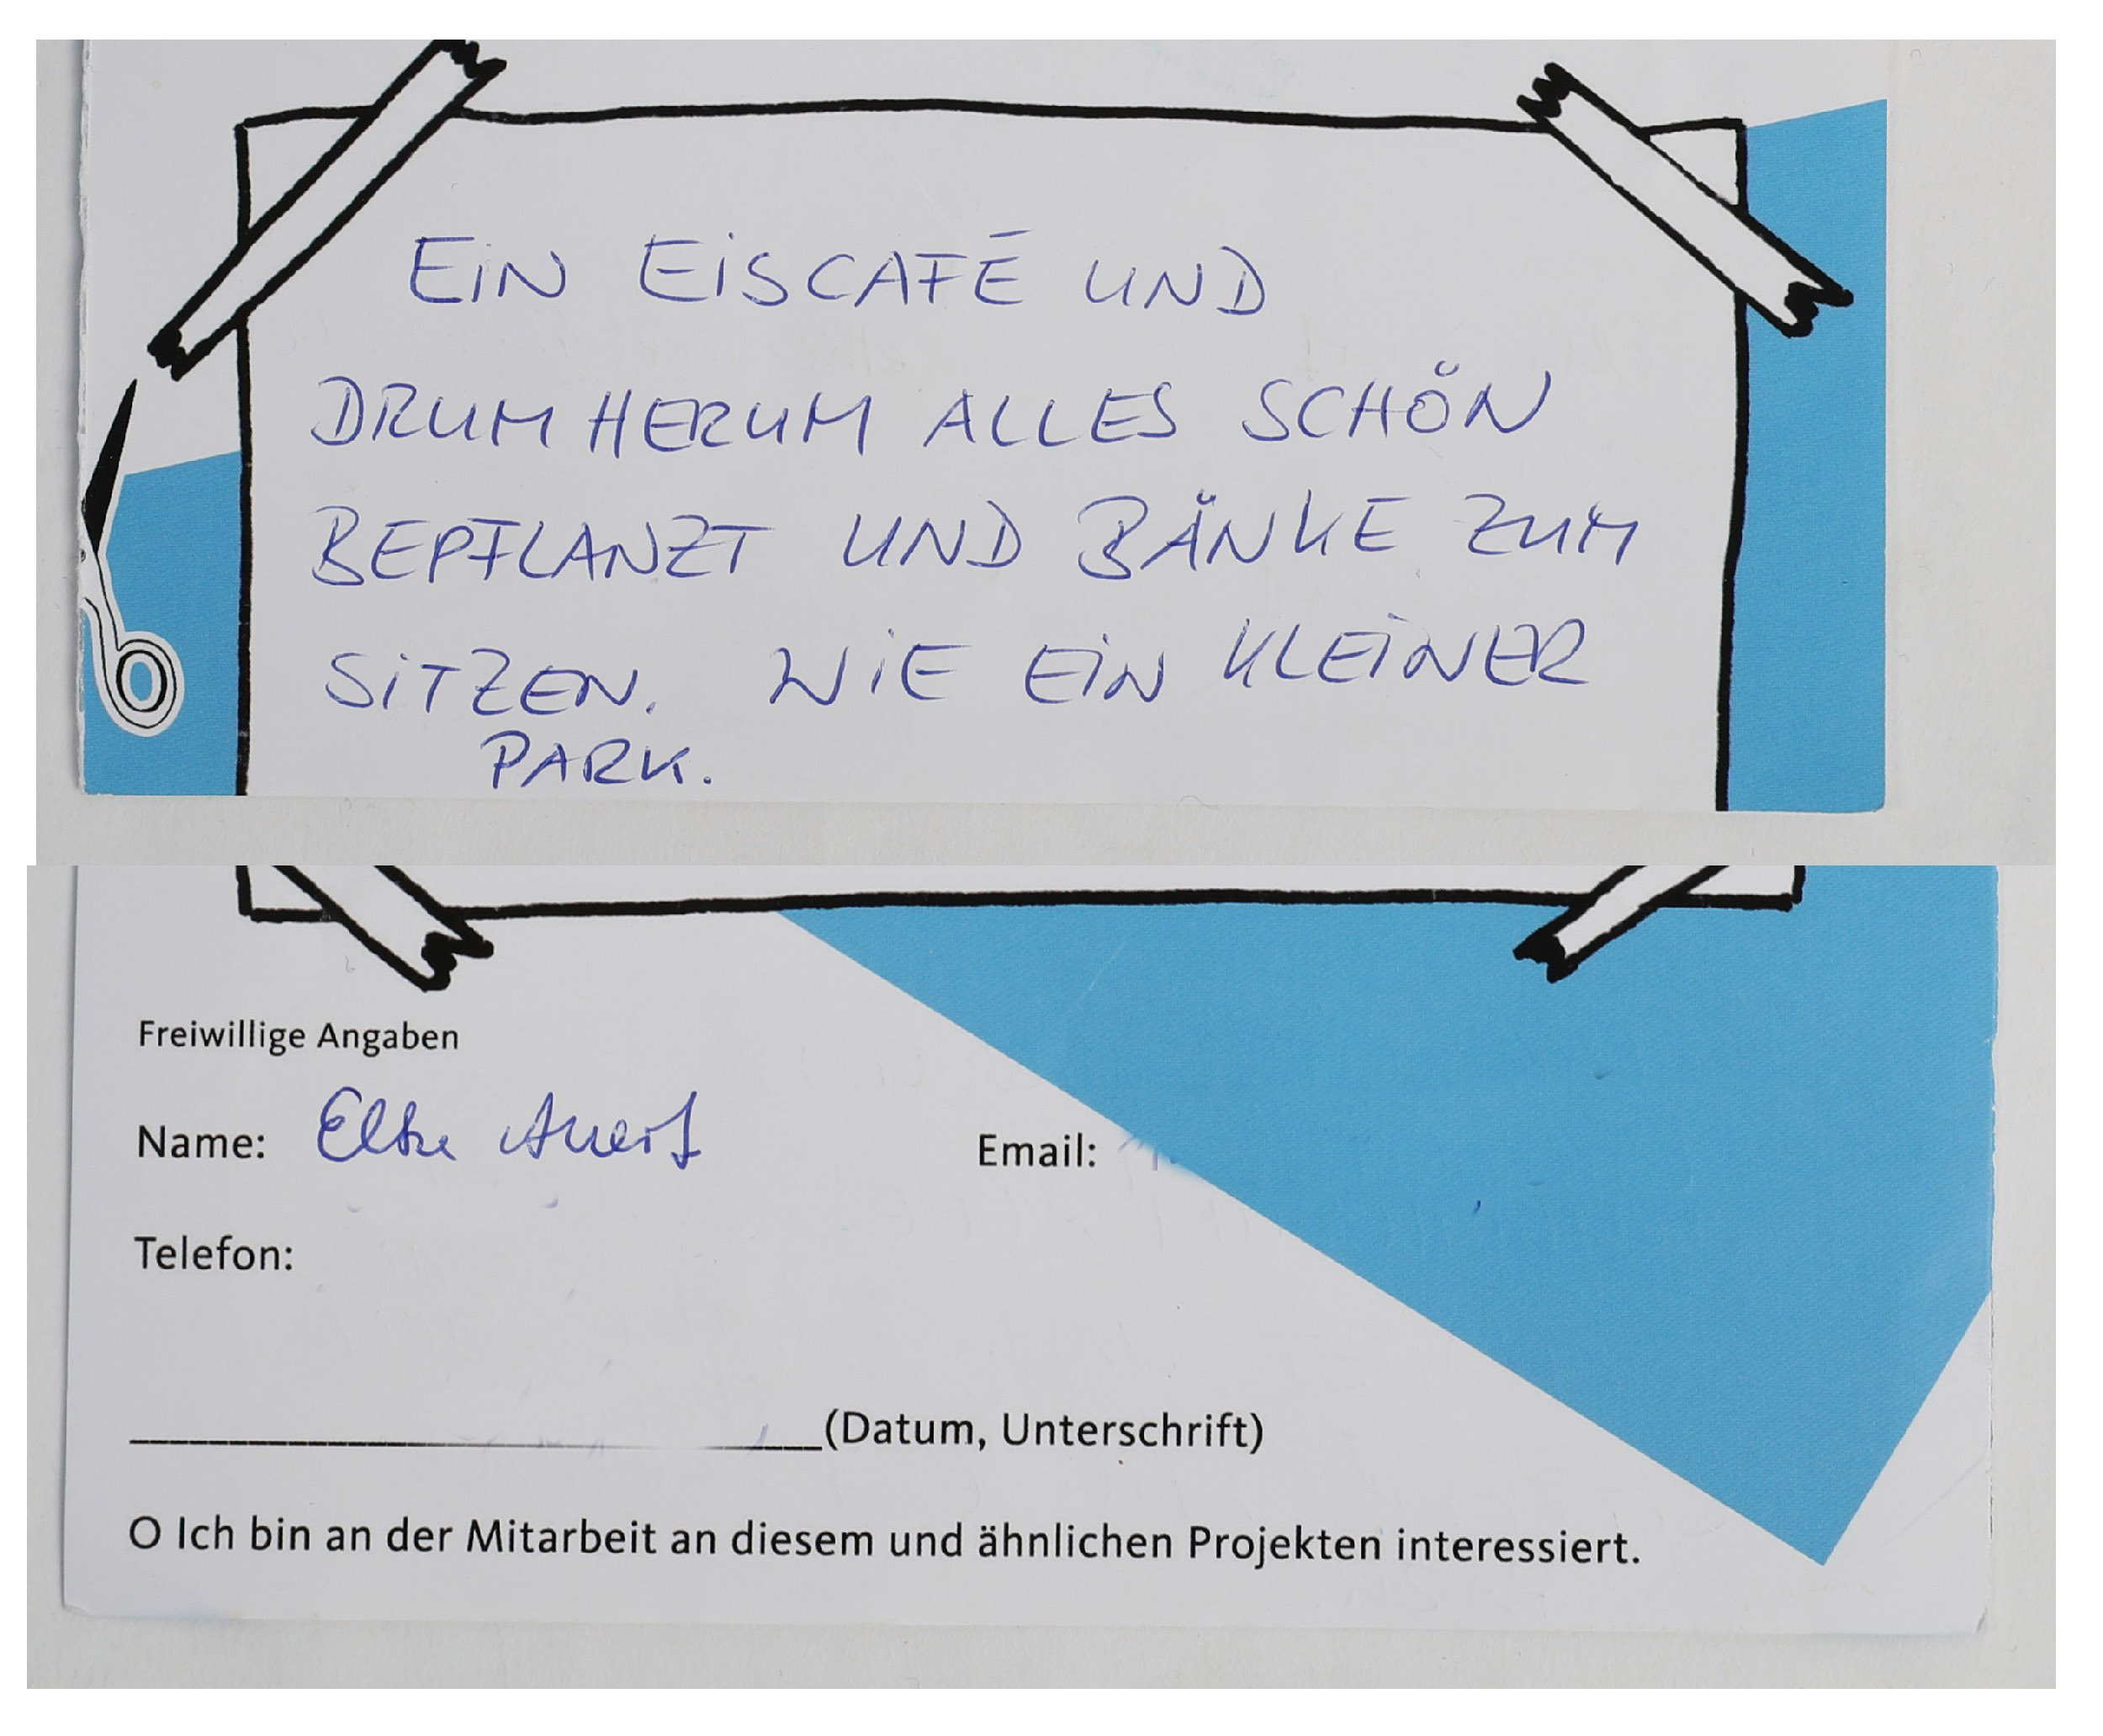 EIN EISCAFÉ UND
DRUMHERUM ALLES SCHÖN
BEPFLANZT UND BÄNKE ZUM
SITZEN. WIE EIN KLEINER
PARK.
Freiwillige Angaben
Name: Elke
Email:
Telefon:
(Datum, Unterschrift)
O Ich bin an der Mitarbeit an diesem und ähnlichen Projekten interessiert.